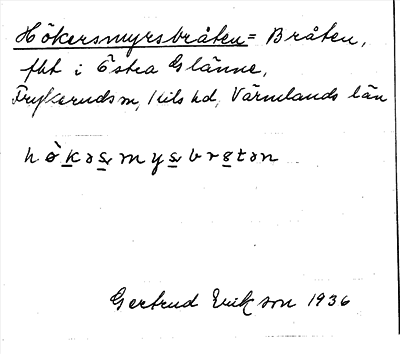 Hökersmyrsbråten = Bråten,
fbt i Östra Glänne,
Frykeruds sn, Kils hd, Värmlands län
hökəsmysbrɵtən
Gertrud Erikson 1936